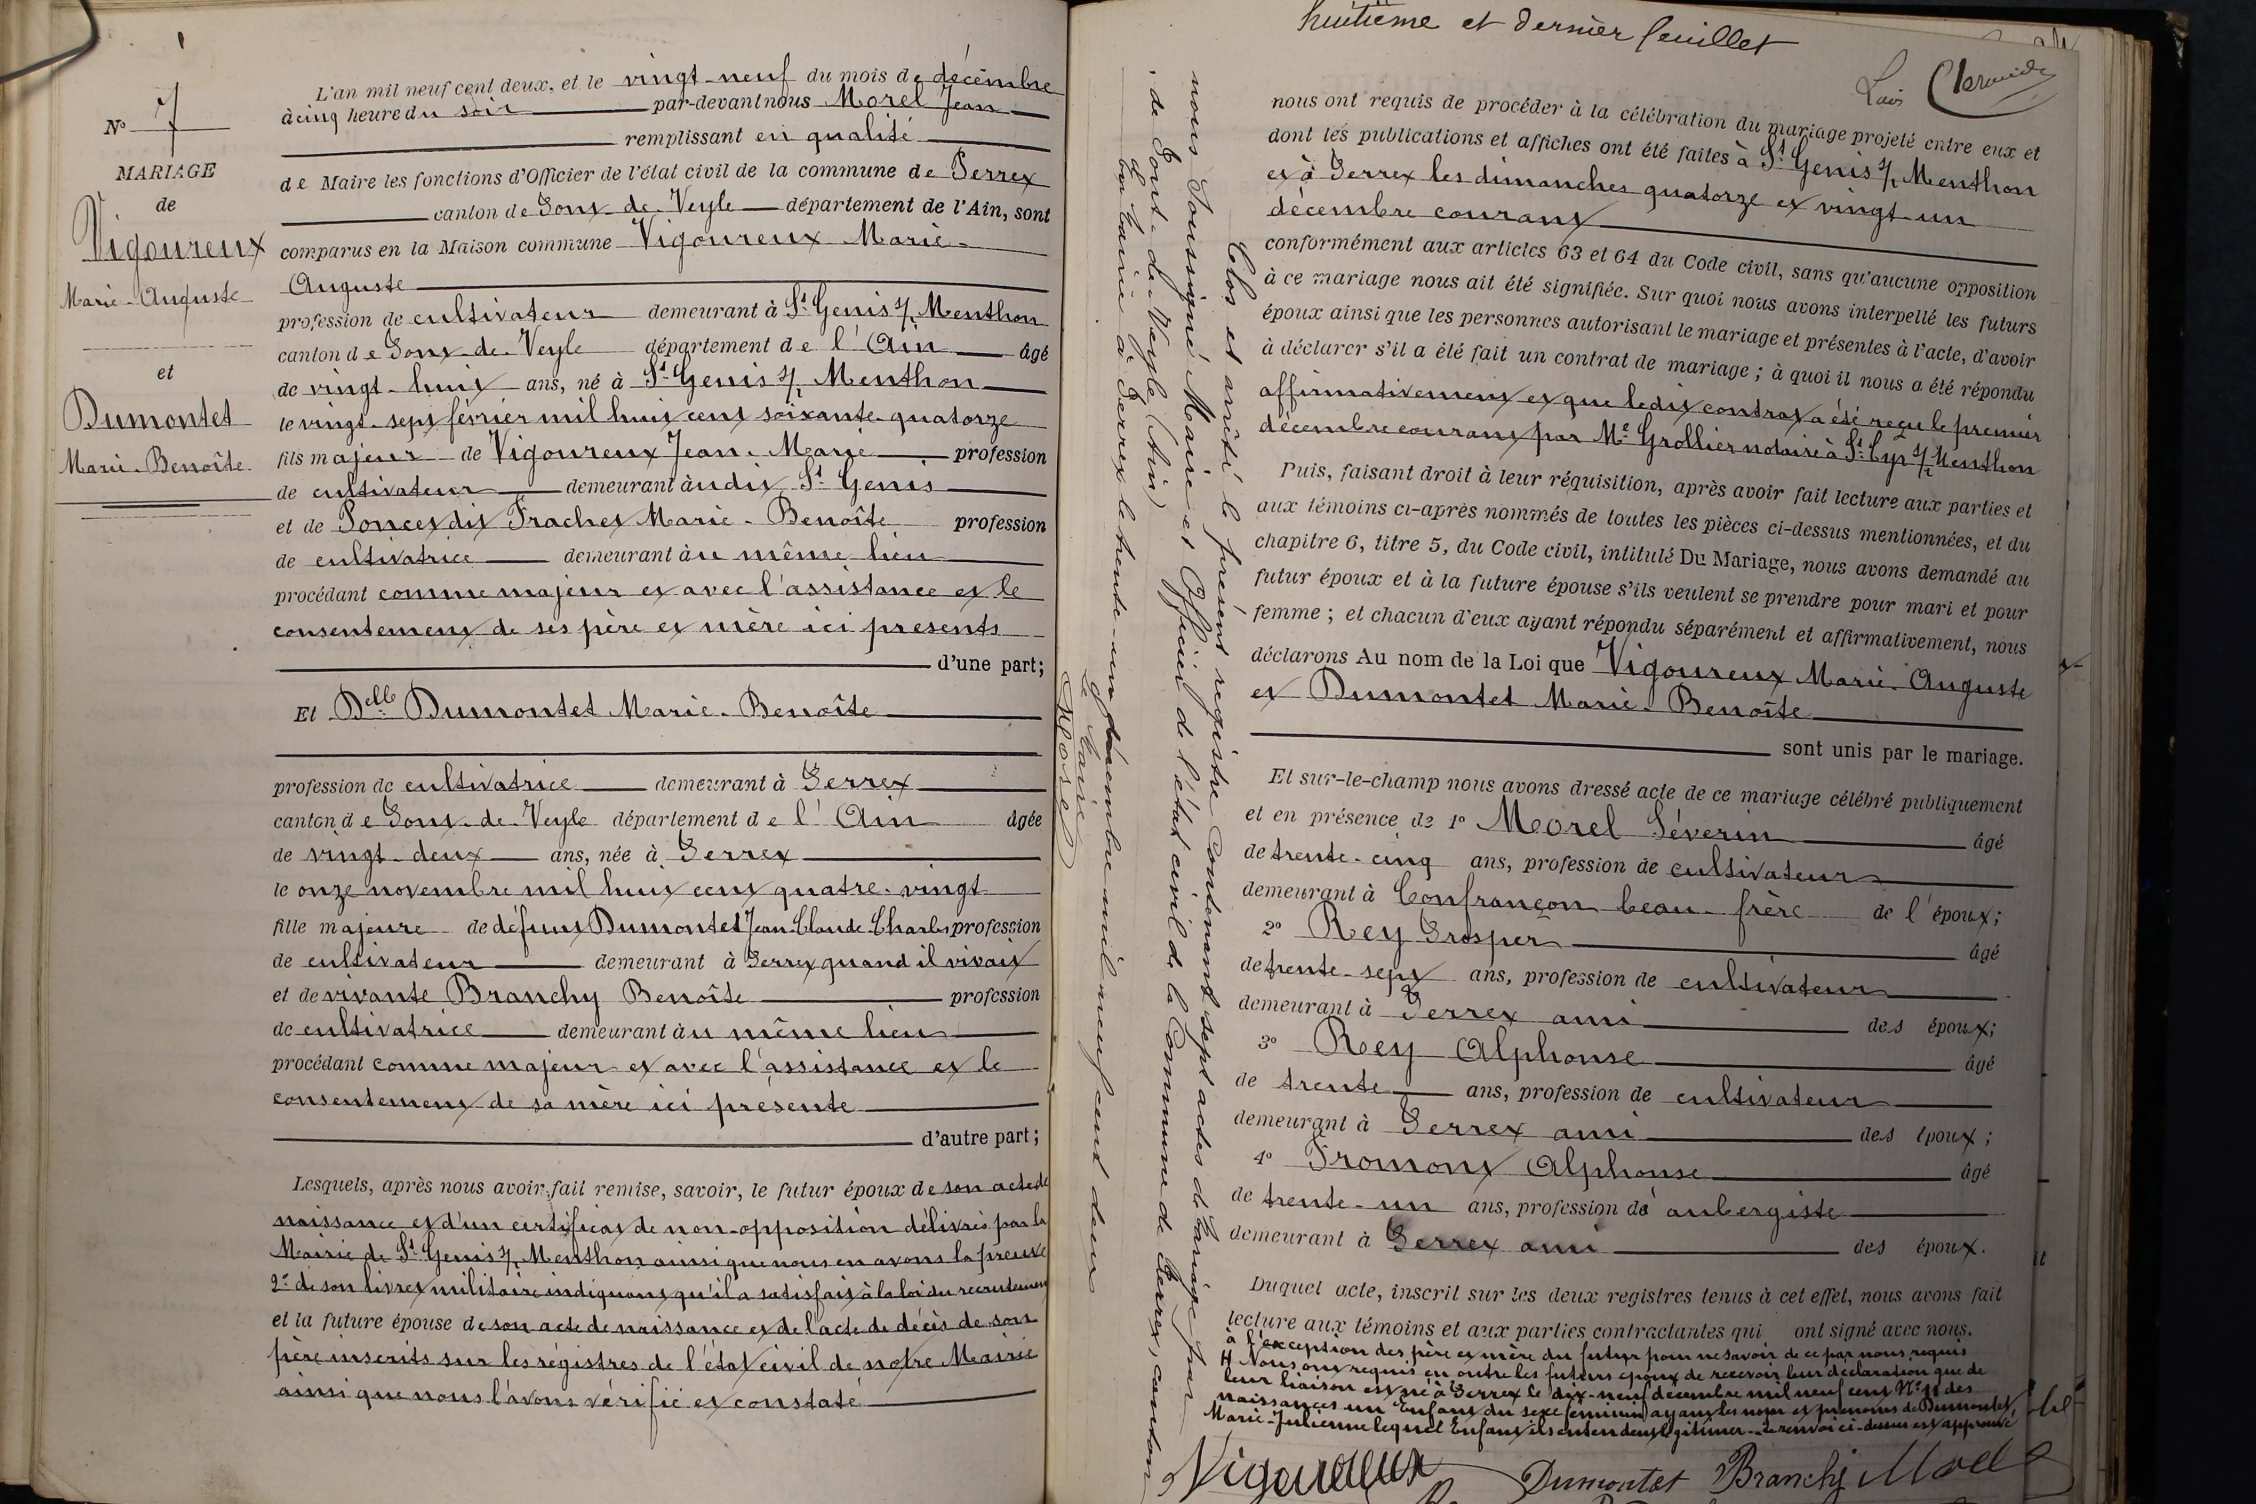 N° 7
MARIAGE
de
Vigoureux
Marie-Auguste
et
Dumontet
Marie-Benoîte
L'an mil neuf cent deux, et le vingt-neuf du mois de décembre
à cinq heure du soir par-devant nous Morel Jean
remplissant en qualité
de Maire les fonctions d'Officier de l'état civil de la commune de Perrex
canton de Pont-de-Veyle département de l'Ain, sont
comparus en la Maison commune Vigoureux Marie-
Auguste
profession de cultivateur demeurant à St Genis s/ Menthon
canton de Pont-de-Veyle département de l'Ain âgé
de vingt-huit ans, né à St Genis s/ Menthon
le vingt-sept février mil huit cent soixante-quatorze
fils majeur de Vigoureux Jean-Marie profession
de cultivateur demeurant àudit St Genis
et de Poncet dit Trachet Marie-Benoîte profession
de cultivatrice demeurant àu même lieu
procédant comme majeur et avec l'assistance et le
consentement de ses père et mère ici présents
d'une part;
Et Delle Dumontet Marie-Benoîte
profession de cultivatrice demeurant à Perrex
canton de Pont-de-Veyle département de l'Ain âgée
de vingt-deux ans, née à Perrex
le onze novembre mil huit cent quatre-vingt
fille majeure de défunt Dumontet Jean-Claude-Charles profession
de cultivateur demeurant à Perrex quand il vivait
et de vivante Branchy Benoîte profession
de cultivatrice demeurant àu même lieu
procédant comme majeur et avec l'assistance et le
consentement de sa mère ici présente
d'autre part;
Lesquels, après nous avoir fait remise, savoir, le futur époux de son acte de
naissance et d'un certificat de non-opposition délivrés par la
Mairie de St Genis s/ Menthon ainsi que nous en avons la preuve
2° de son livret militaire indiquant qu'il a satisfait à la loi du recrutement
et la future épouse de son acte de naissance et de l'acte de décès de son
père inscrits sur les régistres de l'état civil de notre Mairie
ainsi que nous l'avons vérifié et constaté
huitième et dernier feuillet
nous ont requis de procéder à la célébration du mariage projeté entre eux et
dont les publications et affiches ont été faites à St Genis s/ Menthon
et à Perrex les dimanches quatorze et vingt-un
décembre courant
conformément aux articles 63 et 64 du Code civil, sans qu'aucune opposition
à ce mariage nous ait été signifiée. Sur quoi nous avons interpellé les futurs
époux ainsi que les personnes autorisant le mariage et présentes à l'acte, d'avoir
à déclarer s'il a été fait un contrat de mariage; à quoi il nous a été répondu
affirmativement et que ledit contrat a été reçu le premier
décembre courant par Me Grollier notaire à St Cyr s/ Menthon
Puis, faisant droit à leur réquisition, après avoir fait lecture aux parties et
aux témoins ci-après nommés de toutes les pièces ci-dessus mentionnées, et du
chapitre 6, titre 5, du Code civil, intitulé Du Mariage, nous avons demandé au
futur époux et à la future épouse s'ils veulent se prendre pour mari et pour
femme; et chacun d'eux ayant répondu séparément et affirmativement, nous
déclarons Au nom de la Loi que Vigoureux Marie-Auguste
et Dumontet Marie-Benoîte
sont unis par le mariage.
Et sur-le-champ nous avons dressé acte de ce mariage célébré publiquement
et en présence de 1° Morel Séverin âgé
de trente-cinq ans, profession de cultivateur
demeurant à Confrançon beau-frère de l'époux;
2° Rey Prosper âgé
de trente-sept ans, profession de cultivateur
demeurant à Perrex ami des époux;
3° Rey Alphonse âgé
de trente ans, profession de cultivateur
demeurant à Perrex ami des époux;
4° Fromont Alphonse âgé
de trente-un ans, profession de aubergiste
demeurant à Perrex ami des époux.
Duquel acte, inscrit sur les deux registres tenus à cet effet, nous avons fait
lecture aux témoins et aux parties contractantes qui ont signé avec nous.
à l'exception des père et mère du futur pour ne savoir de ce par nous requis
H Nous ont requis en outre les futurs époux de recevoir leur déclaration que de
leur liaison est né à Perrex le dix-neuf décembre mil neuf cent N° 11 des
naissances un Enfant du sexe féminin ayant les noms et prénoms de Dumontet
Marie-Julienne lequel Enfant ils entendent légitimer. Le renvoi ci-dessus est approuvé
Vigoureux Dumontet Branchy Morel
Clos et arrêté le présent registre contenant sept actes de Mariage par
nous soussigné Maire et Officier de l'état civil de la Commune de Perrex, canton
de Pont-de-Veyle (Ain)
En Mairie à Perrex le trente-un décembre mil neuf cent deux
Le Maire